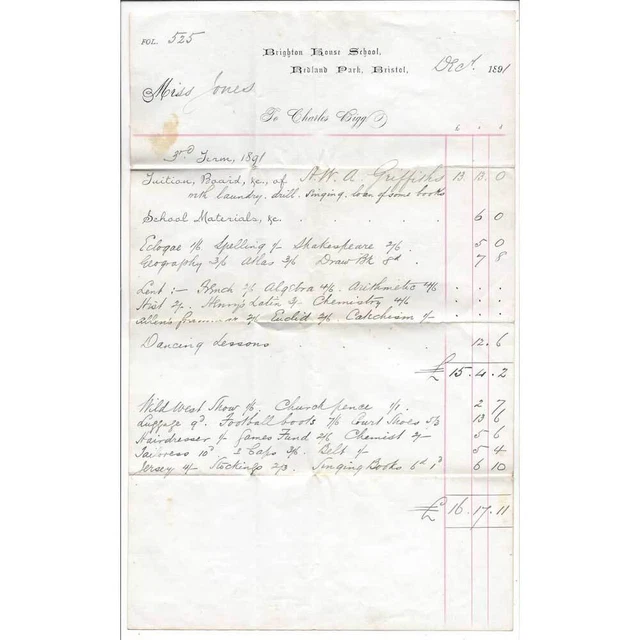 FOL. 525
Brighton House School,
Redland Park, Bristol, Dec. 1891
Miss Jones
To Charles Bigg
£ s d
3rd Term, 1891
Tuition, Board, &c., of A. W. A. Griffiths 13 13 0
with laundry. drill. singing. loan of some books
School Materials, &c. . . . . 6 0
Eclogae 1/6 Spelling 1/- Shakespeare 2/6 . 5 0
Geography 3/6 Atlas 3/6 Draw Bk 8d. . 7 8
Lent :- French 2/- Algebra 4/6 Arithmetic 4/6 . . .
Hist 2/- Henry's Latin 3/- Chemistry 4/6 . . .
Allen's Grammar 2/6 Euclid 2/6 Catechism 1/- . . .
Dancing Lessons . . . . 12 . 6
£ 15 . 4 . 2
Wild West Show 1/6. Church pence 1/1. 2 7
Luggage 9d. Football boots 7/6 Court Shoes 5/3 13 6
Hairdresser 1/- Games Fund 2/6 Chemist 2/- 5 6
Tailoress 10d 2 Caps 3/6. Belt 1/- 5 4
Jersey 4/- Stockings 2/3. Singing Books 6d 1d 6 10
£ 16 . 17 . 11